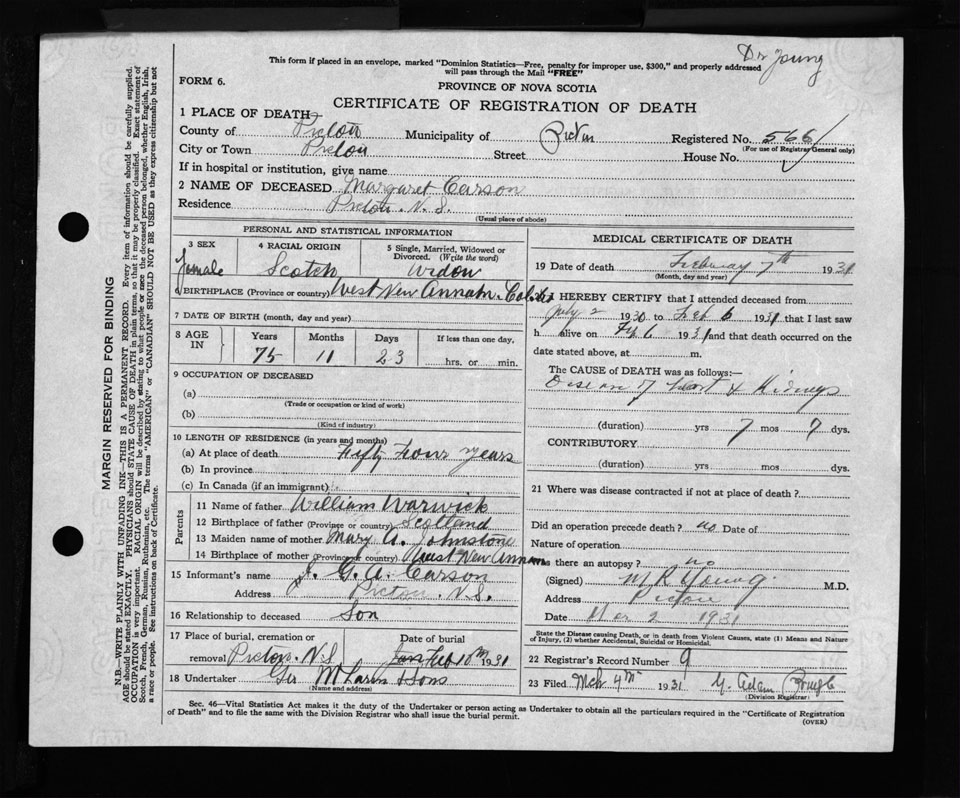 Dr Young
This form if placed in an envelope, marked "Dominion Statistics—Free, penalty for improper use, $300," and properly addressed
will pass through the Mail "FREE"
FORM 6.
PROVINCE OF NOVA SCOTIA
CERTIFICATE OF REGISTRATION OF DEATH
1 PLACE OF DEATH
County of Pictou Municipality of Pictou Registered No. 566
(For use of Registrar General only)
City or Town Pictou Street House No.
If in hospital or institution, give name
2 NAME OF DECEASED Margaret Carson
Residence Pictou. N.S.
(Usual place of abode)
PERSONAL AND STATISTICAL INFORMATION
3 SEX 4 RACIAL ORIGIN 5 Single, Married, Widowed or Divorced. (Write the word)
female Scotch Widow
6 BIRTHPLACE (Province or country) West New Annan
7 DATE OF BIRTH (month, day and year)
8 AGE IN Years Months Days If less than one day,
75 11 23 hrs. or min.
9 OCCUPATION OF DECEASED
(a)
(Trade or occupation or kind of work)
(b)
(Kind of industry)
10 LENGTH OF RESIDENCE (in years and months)
(a) At place of death Fifty Four years
(b) In province
(c) In Canada (if an immigrant)
Parents
11 Name of father William Warwick
12 Birthplace of father (Province or country) Scotland
13 Maiden name of mother Mary A. Johnstone
14 Birthplace of mother (Province or country) West New Annan
15 Informant's name G. A. Carson
Address Pictou N.S.
16 Relationship to deceased Son
17 Place of burial, cremation or removal Pictou. N.S Date of burial Feb 10th 1931
18 Undertaker Geo McLaren & Sons
(Name and address)
MEDICAL CERTIFICATE OF DEATH
19 Date of death February 7th 1931
(Month, day and year)
I HEREBY CERTIFY that I attended deceased from
July 2 1930 to Feb 6 1931 that I last saw
h alive on Feb 6 1931 and that death occurred on the
date stated above, at m.
The CAUSE of DEATH was as follows:—
Disease of heart & Kidneys
(duration) yrs 7 mos 7 dys.
CONTRIBUTORY
(duration) yrs. mos. dys.
21 Where was disease contracted if not at place of death?
Did an operation precede death? no Date of
Nature of operation
Was there an autopsy? no
(Signed) M R Young M.D.
Address Pictou
Date Mar 2 1931
State the Disease causing Death, or in death from Violent Causes, state (1) Means and Nature
of Injury, (2) whether Accidental, Suicidal or Homicidal.
22 Registrar's Record Number 9
23 Filed Mch 4th 1931
(Division Registrar)
Sec. 46—Vital Statistics Act makes it the duty of the Undertaker or person acting as Undertaker to obtain all the particulars required in the "Certificate of Registration
of Death" and to file the same with the Division Registrar who shall issue the burial permit.
(OVER)
MARGIN RESERVED FOR BINDING
N.B.—WRITE PLAINLY WITH UNFADING INK—THIS IS A PERMANENT RECORD. Every item of information should be carefully supplied.
AGE should be stated EXACTLY. PHYSICIANS should STATE CAUSE OF DEATH in plain terms, so that it may be properly classified. Exact statement of
OCCUPATION is very important. RACIAL ORIGIN will be described by stating to what people or race the deceased person belonged, whether English, Irish,
Scotch, French, German, Russian, Ruthenian, etc. The terms "AMERICAN" or "CANADIAN" SHOULD NOT BE USED as they express citizenship but not
a race or people. See instructions on back of Certificate.